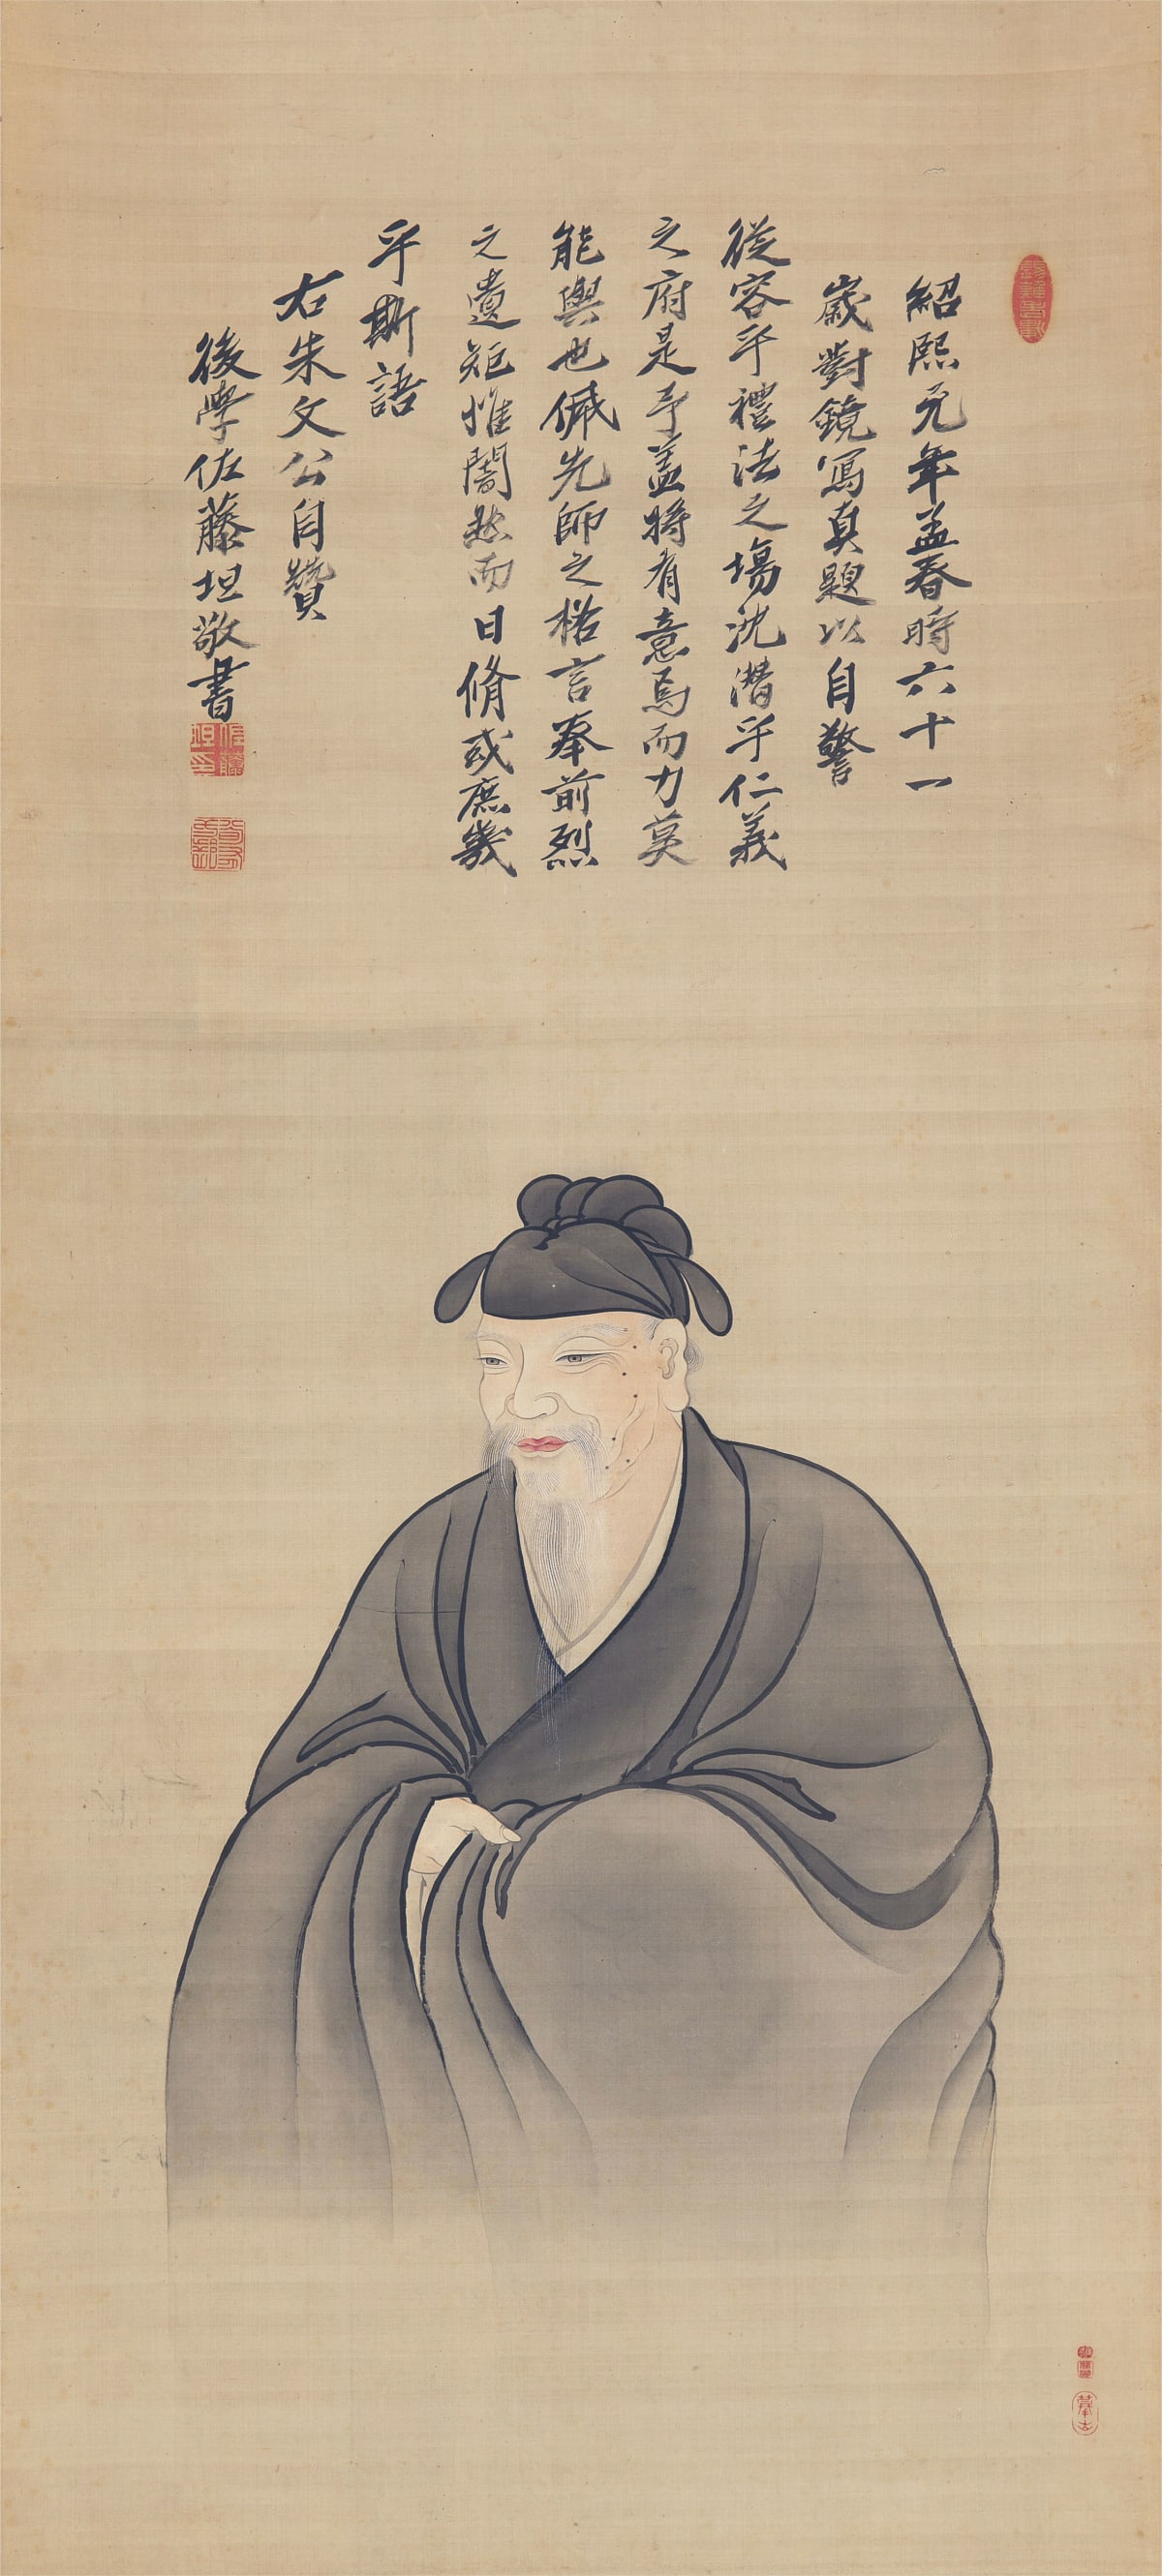 紹熙元年孟春時六十一
歲對鏡寫真題以自警
從容乎禮法之場沈潛乎仁義
之府是予蓋將有意焉而力莫
能與也佩先師之格言奉前烈
之遺矩惟闇然而日脩或庶幾
乎斯語
右朱文公自贊
後學佐藤坦敬書
佐藤坦印